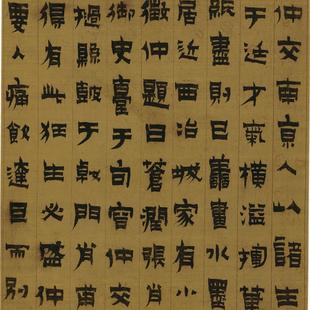 仲交南京人以諸生
于廷才氣橫溢揮筆
盡則已善畫水墨
居近西冶城家有小
徵仲題曰蒼潤張肖
御史臺于句容仲交
撾縣鼓于門肖甫
得有此狂生必盛仲
要入痛飲達旦而別